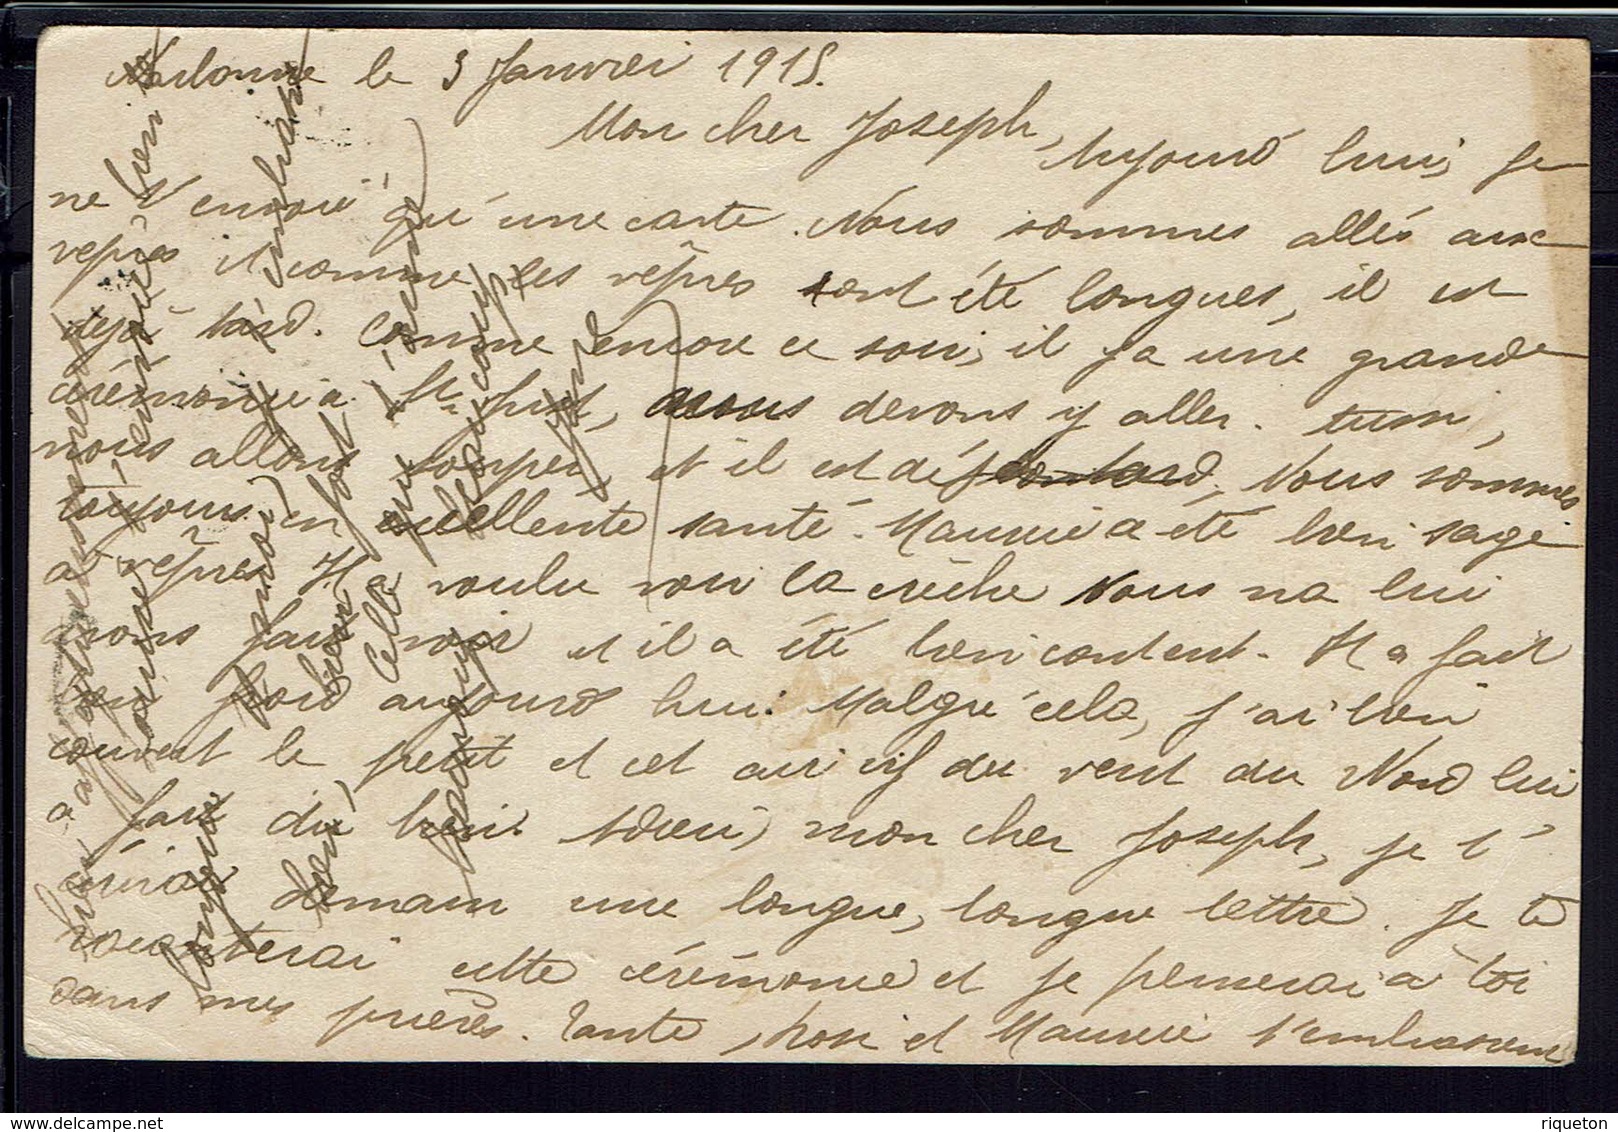 Narbonne le 3 Janvier 1915.
Mon cher Joseph,
Aujourd'hui, je
ne t'envoie qu'une carte. Nous sommes allés aux
vêpres et comme les vêpres sont été longues, il est
déjà tard. Comme encore ce soir, il y a une grande
cérémonie à St. Just, nous devons y aller. Aussi,
nous allons souper, et il est déjà tard. Nous sommes
toujours en excellente santé. Maurice a été bien sage
a vêpres. Il a voulu voir la crèche Nous la lui
avons fait voir et il a été bien content. Il a fait
froid aujourd'hui. Malgré cela, j'ai bien
couvert le petit et cet air vif du vent du Nord lui
a fait du bien. Adieu, mon cher Joseph, je t'
écrirai demain une longue, longue lettre. Je te
raconterai cette cérémonie et je penserai à toi
dans mes prières. Tante, et Maurice t'embrassent
bien affectueusement
Celle qui t'aime
beaucoup
riqueton